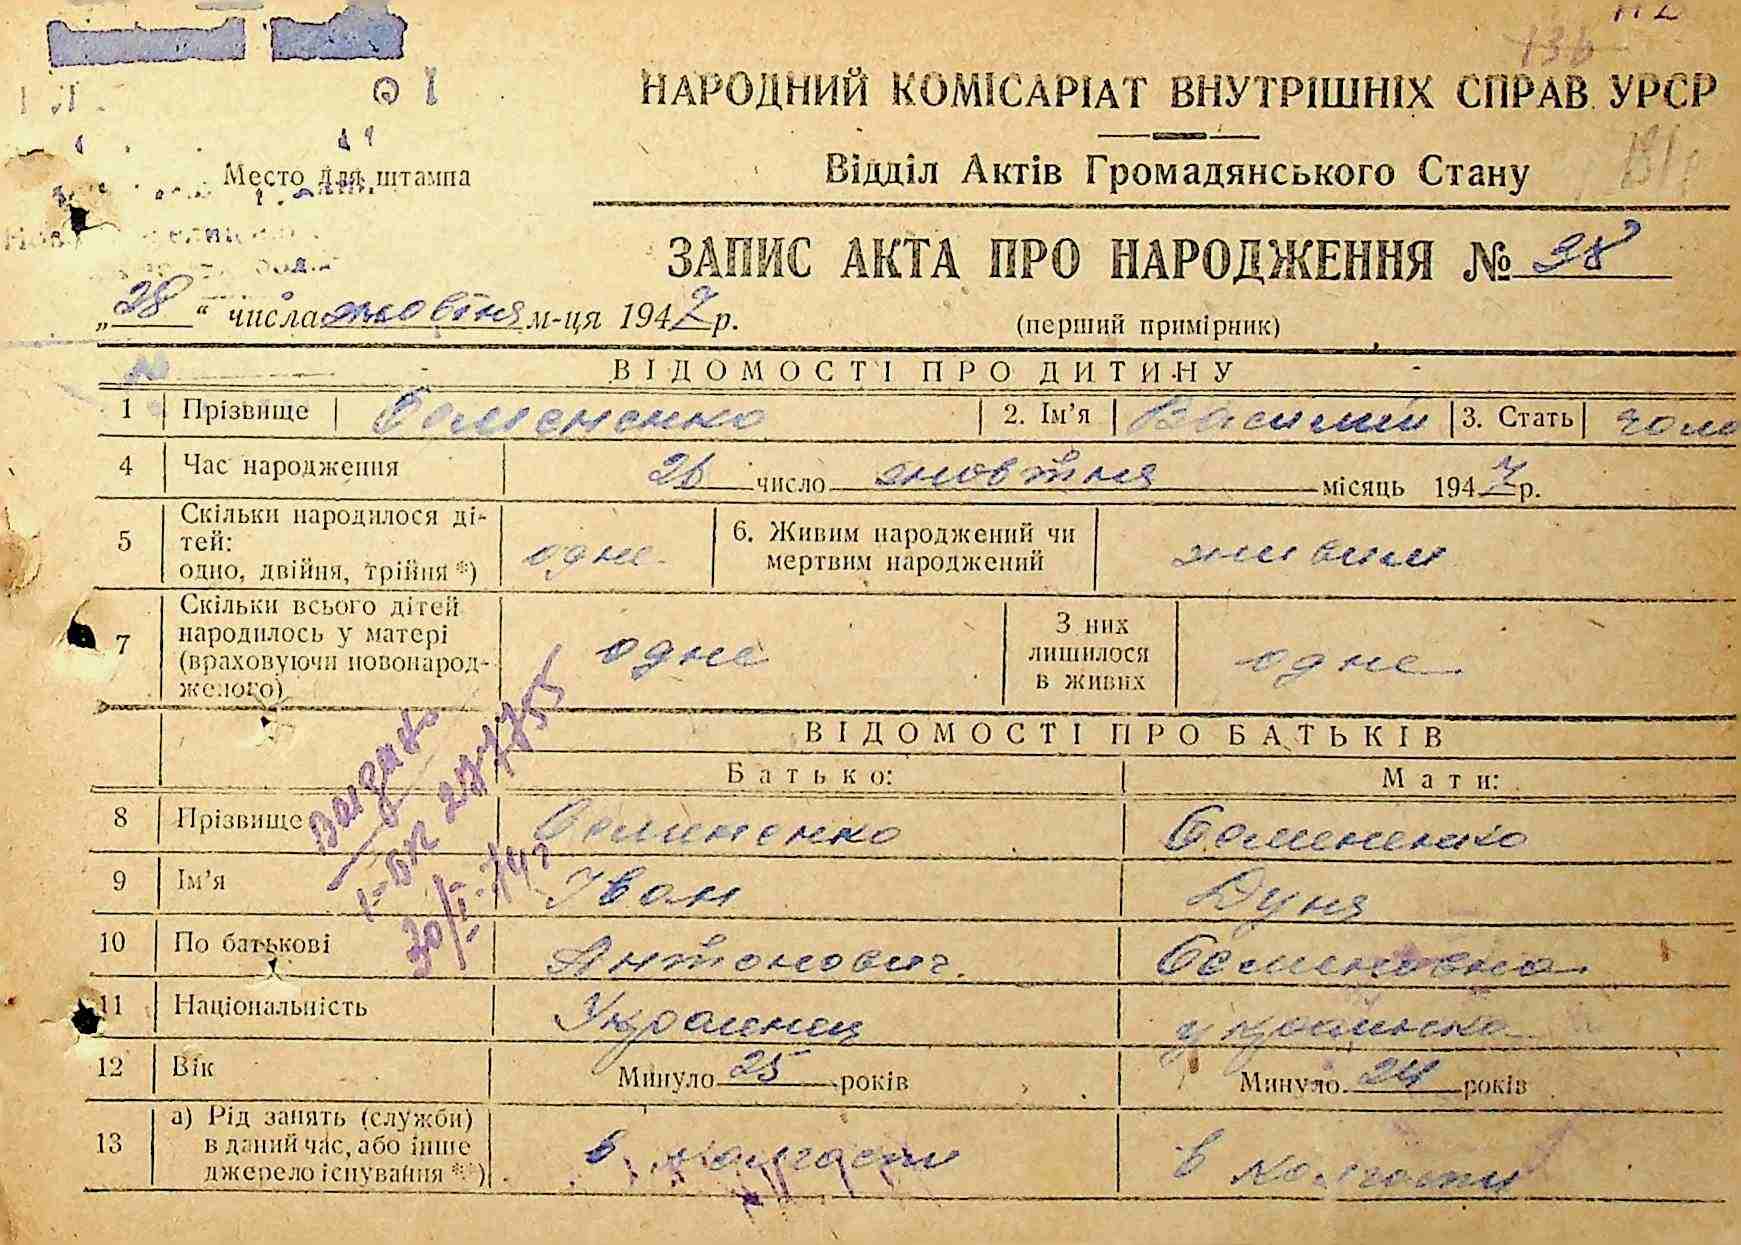 136
НАРОДНИЙ КОМІСАРІАТ ВНУТРІШНІХ СПРАВ УРСР
Відділ Актів Громадянського Стану
Место для штампа
ЗАПИС АКТА ПРО НАРОДЖЕННЯ № 98
„28“ числа жовтня м-ця 1947 р.
(перший примірник)
ВІДОМОСТІ ПРО ДИТИНУ
1 Прізвище Семененко 2. Ім'я Василий 3. Стать чоло
4 Час народження 26 число жовтня місяць 1947 р.
5 Скільки народилося ді-
тей:
одно, двійня, трійня *) одне
6. Живим народжений чи
мертвим народжений живим
7 Скільки всього дітей
народилось у матері
(враховуючи новонарод-
женого) одне
З них
лишилося
в живих одне
ВІДОМОСТІ ПРО БАТЬКІВ
Батько: Мати:
8 Прізвище Семененко Семененко
9 Ім'я Іван Дуня
10 По батькові Антонович Семеновна
11 Національність Украинец украинка
12 Вік Минуло 25 років Минуло 24 років
13 а) Рід занять (служби)
в даний час, або інше
джерело існування **) в колгоспи в колгоспи